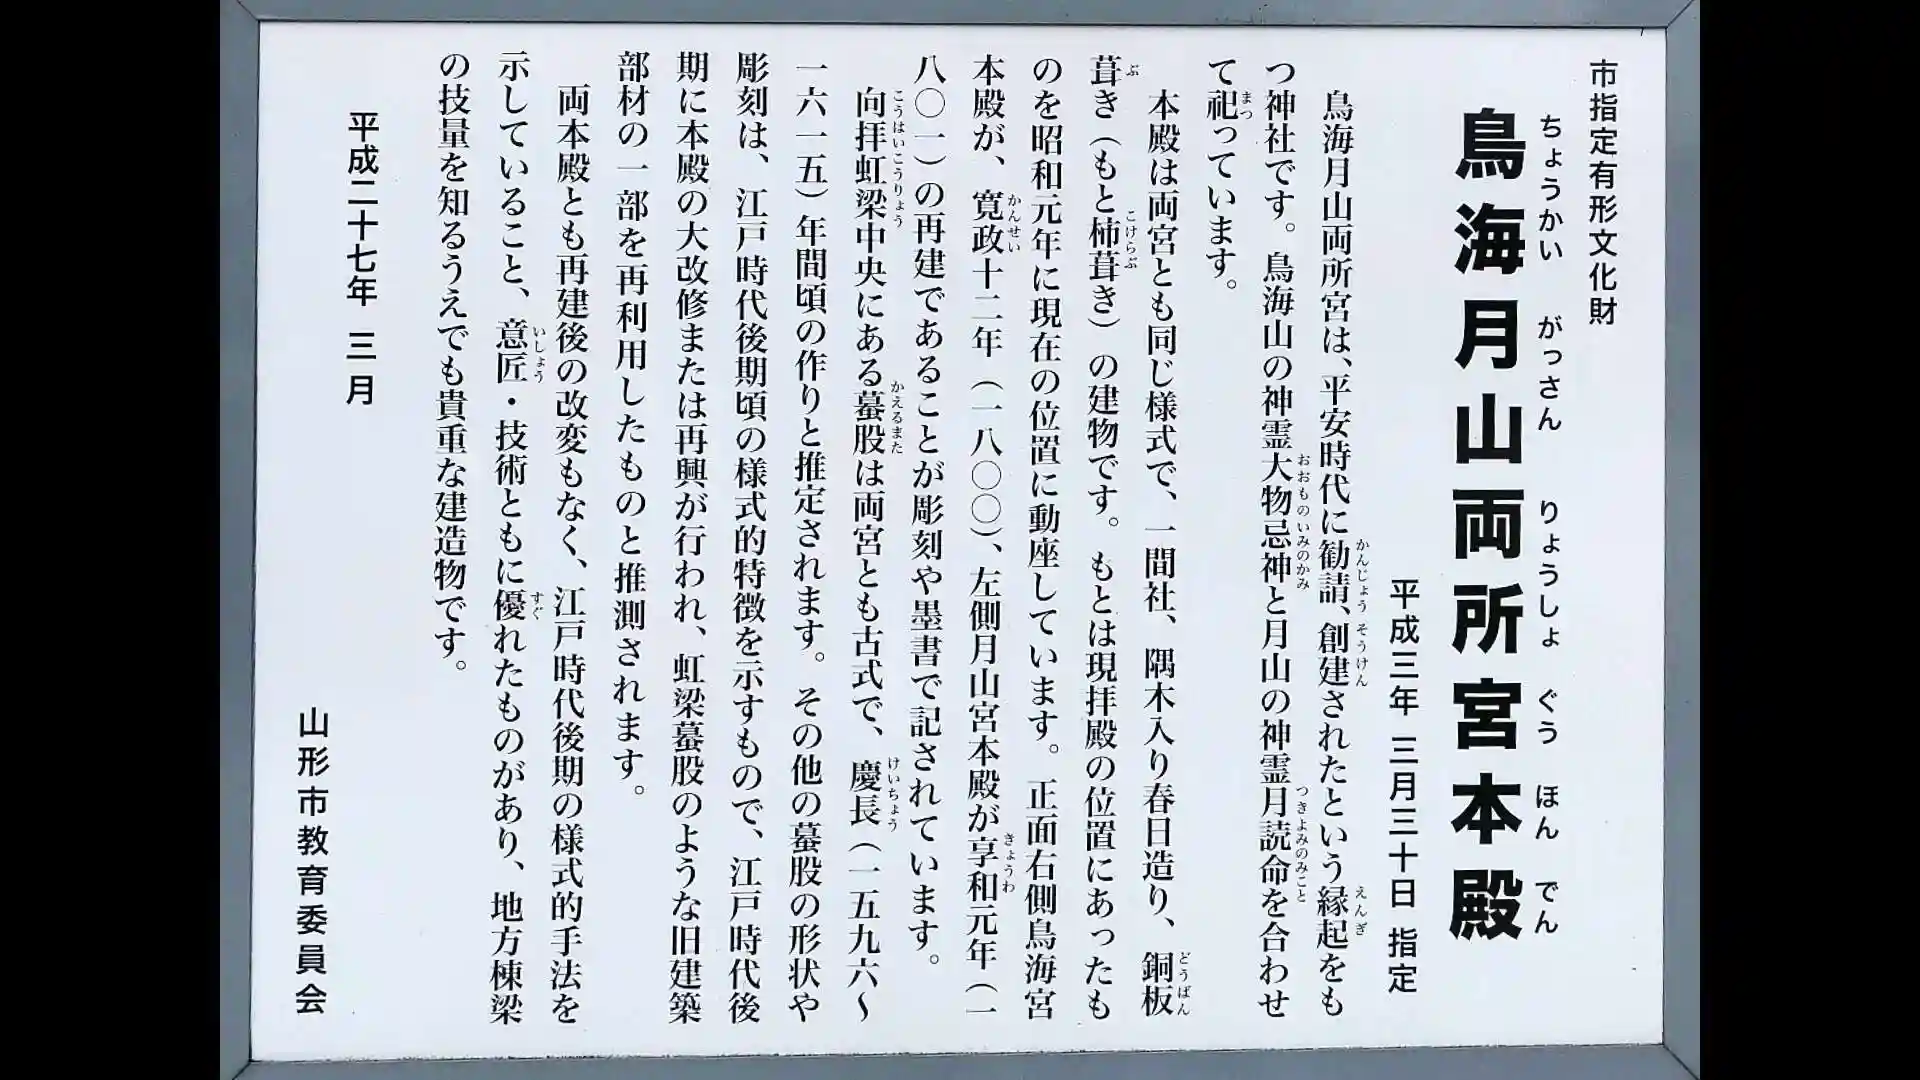 市指定有形文化財
ちょうかい がっさん りょうしょ ぐう ほん でん
鳥海月山両所宮本殿
平成三年 三月三十日 指定
かんじょう そうけん えんぎ
鳥海月山両所宮は、平安時代に勧請、創建されたという縁起をも
おおものいみのかみ つきよみのみこと
つ神社です。鳥海山の神霊大物忌神と月山の神霊月読命を合わせ
まつ
て祀っています。
どうばん
本殿は両宮とも同じ様式で、一間社、隅木入り春日造り、銅板
ぶ こけらぶ
葺き（もと柿葺き）の建物です。もとは現拝殿の位置にあったも
のを昭和元年に現在の位置に動座しています。正面右側鳥海宮
かんせい きょうわ
本殿が、寛政十二年（一八〇〇）、左側月山宮本殿が享和元年（一
八〇一）の再建であることが彫刻や墨書で記されています。
こうはいこうりょう かえるまた けいちょう
向拝虹梁中央にある蟇股は両宮とも古式で、慶長（一五九六～
一六一五）年間頃の作りと推定されます。その他の蟇股の形状や
彫刻は、江戸時代後期頃の様式的特徴を示すもので、江戸時代後
期に本殿の大改修または再興が行われ、虹梁蟇股のような旧建築
部材の一部を再利用したものと推測されます。
両本殿とも再建後の改変もなく、江戸時代後期の様式的手法を
いしょう すぐ
示していること、意匠・技術ともに優れたものがあり、地方棟梁
の技量を知るうえでも貴重な建造物です。
平成二十七年 三月
山形市教育委員会